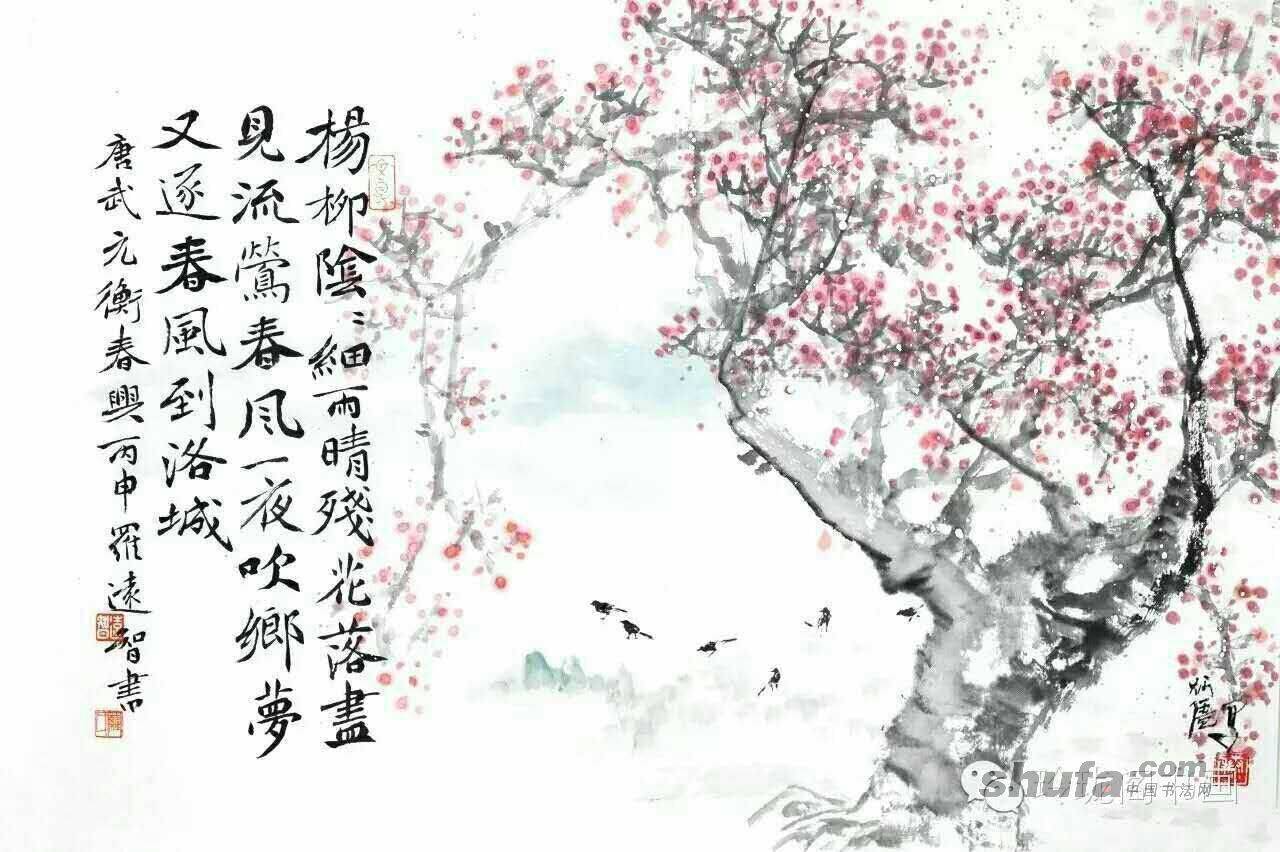 楊柳陰〻細雨晴殘花落盡
見流鶯春风一夜吹鄉夢
又逐春風到洛城
唐武元衡春興丙申羅遠智書
shufa.com
中国书法网